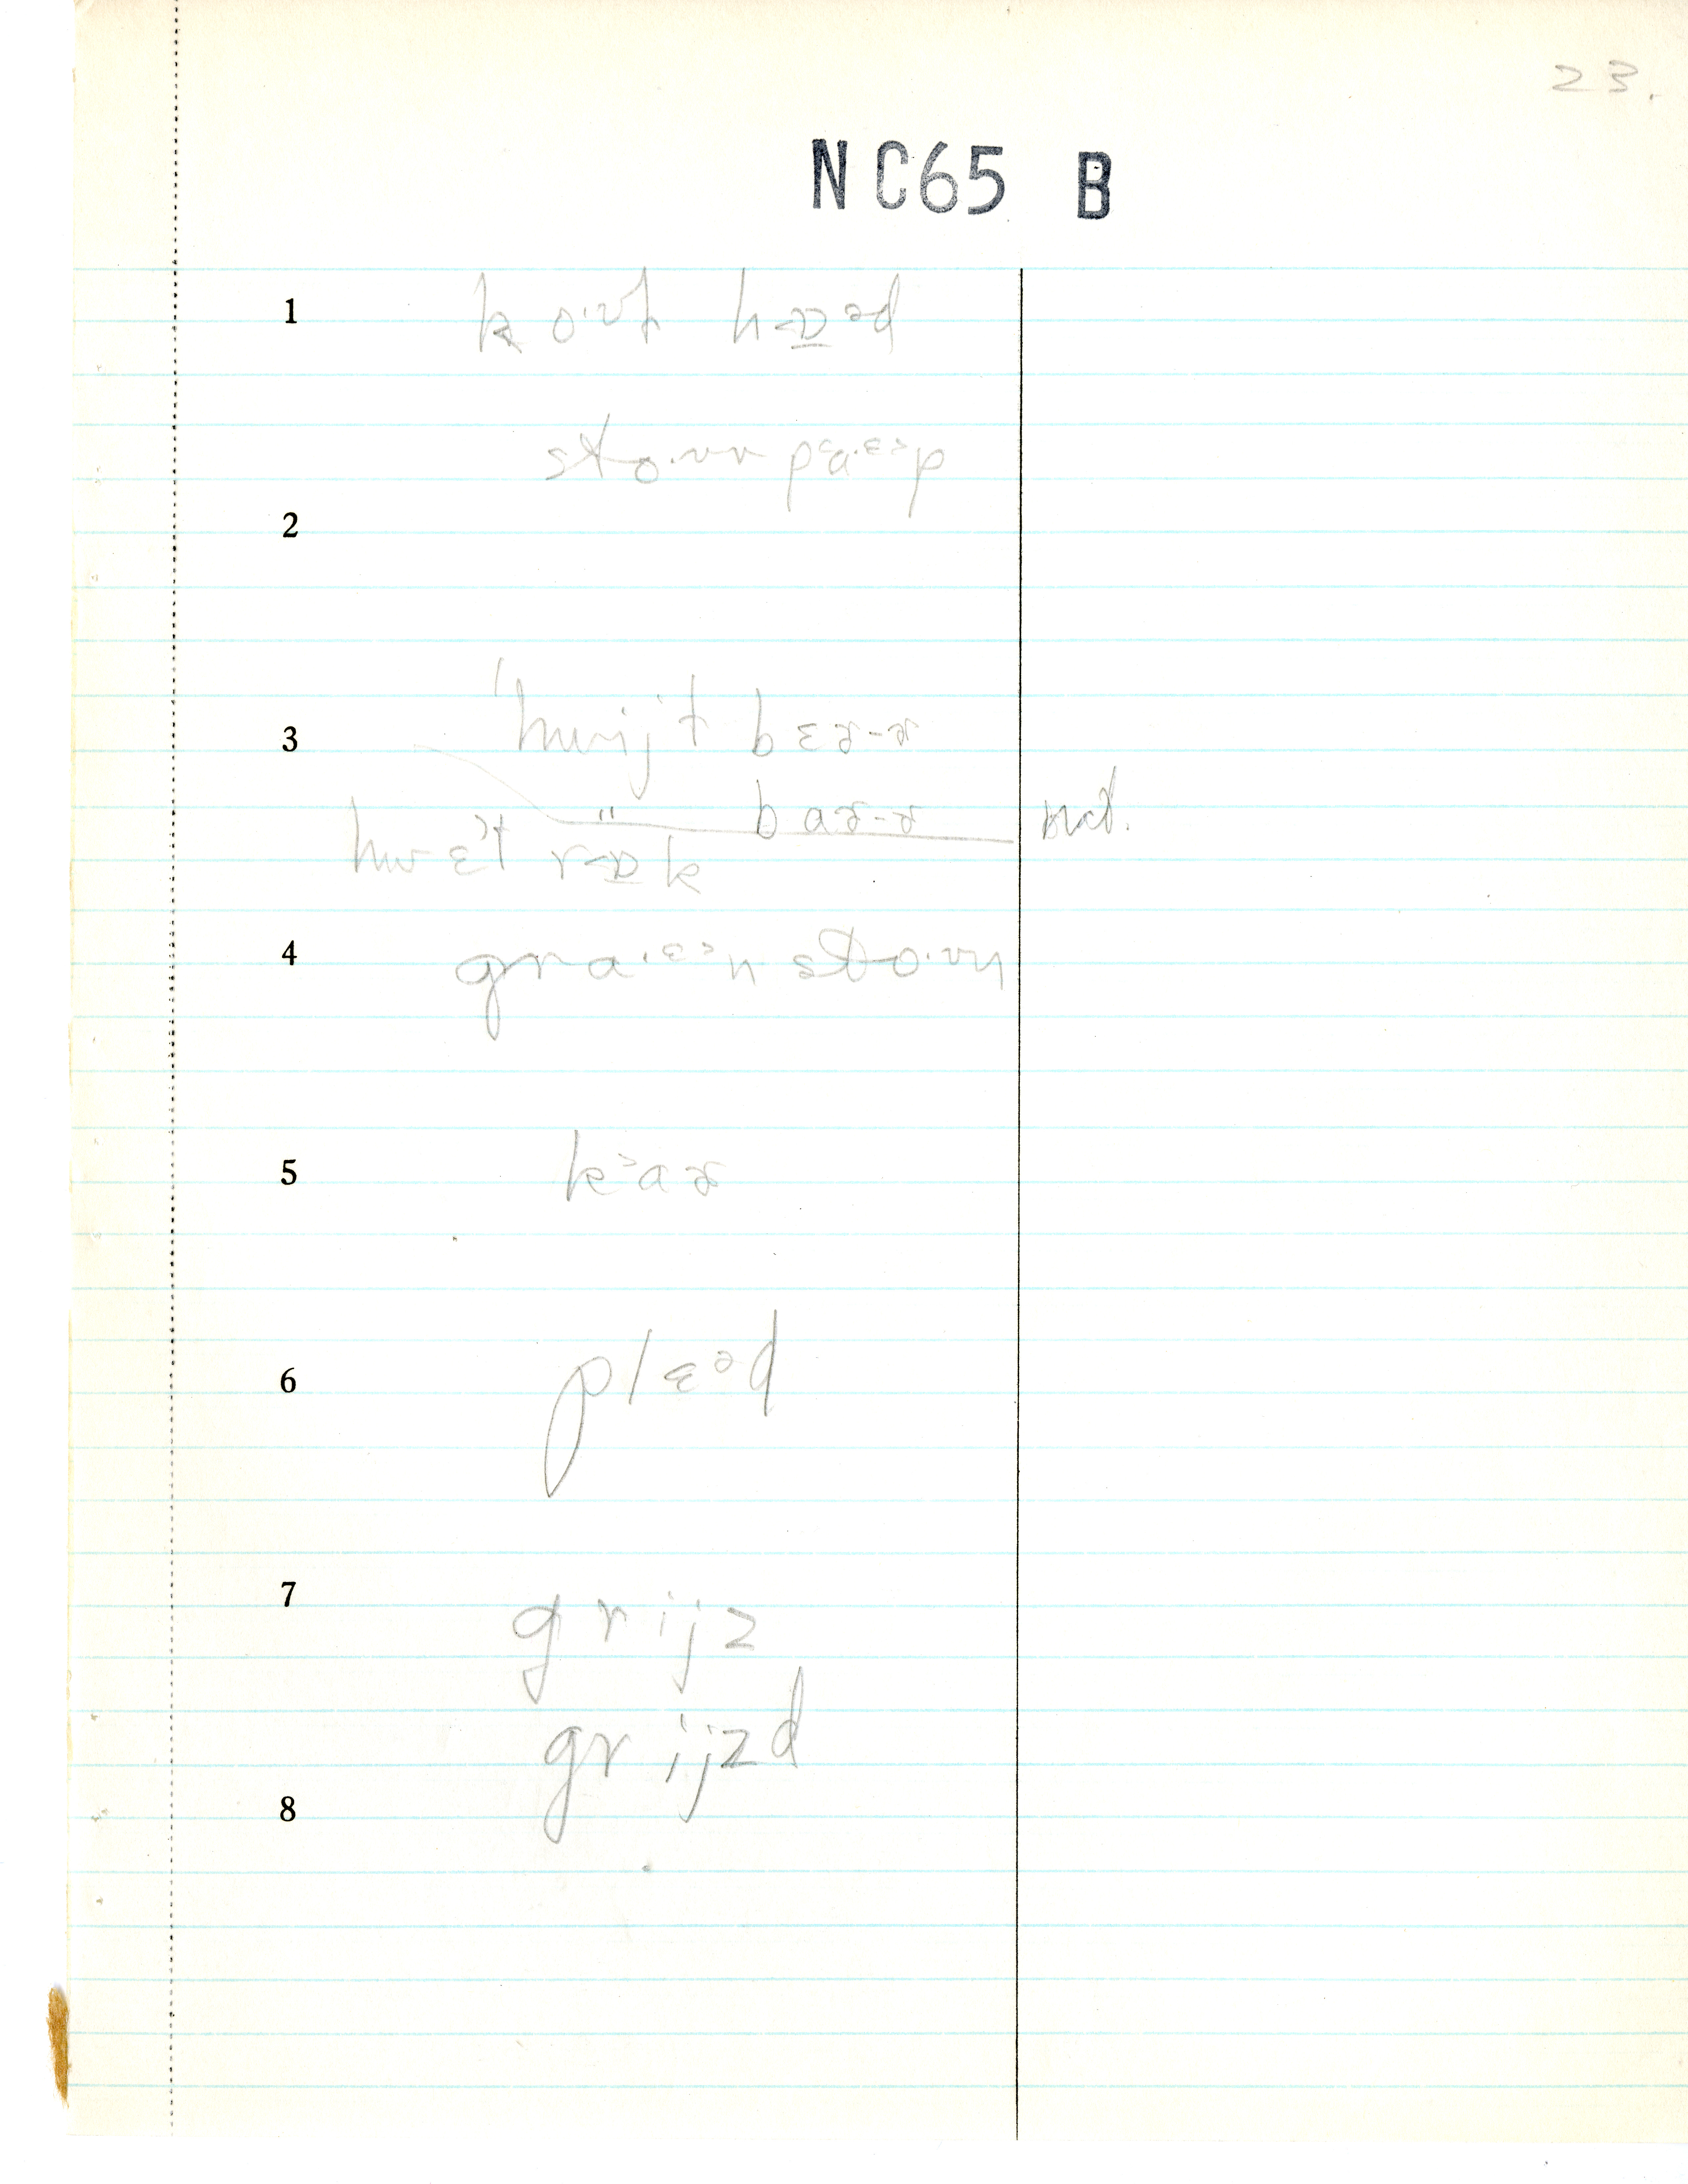 23.
NC65 B
1 ko·ʊt hɒəd
sto·ʊv pa·ɛp
2
3 hwijt bɛɚ-ɚ
" baɚ-ɚ nat.
hwɛt rɒk
4 gra·ɛn sto·ʊn
5 k˃aɚ
6 plɛəd
7 grijz
grijzd
8